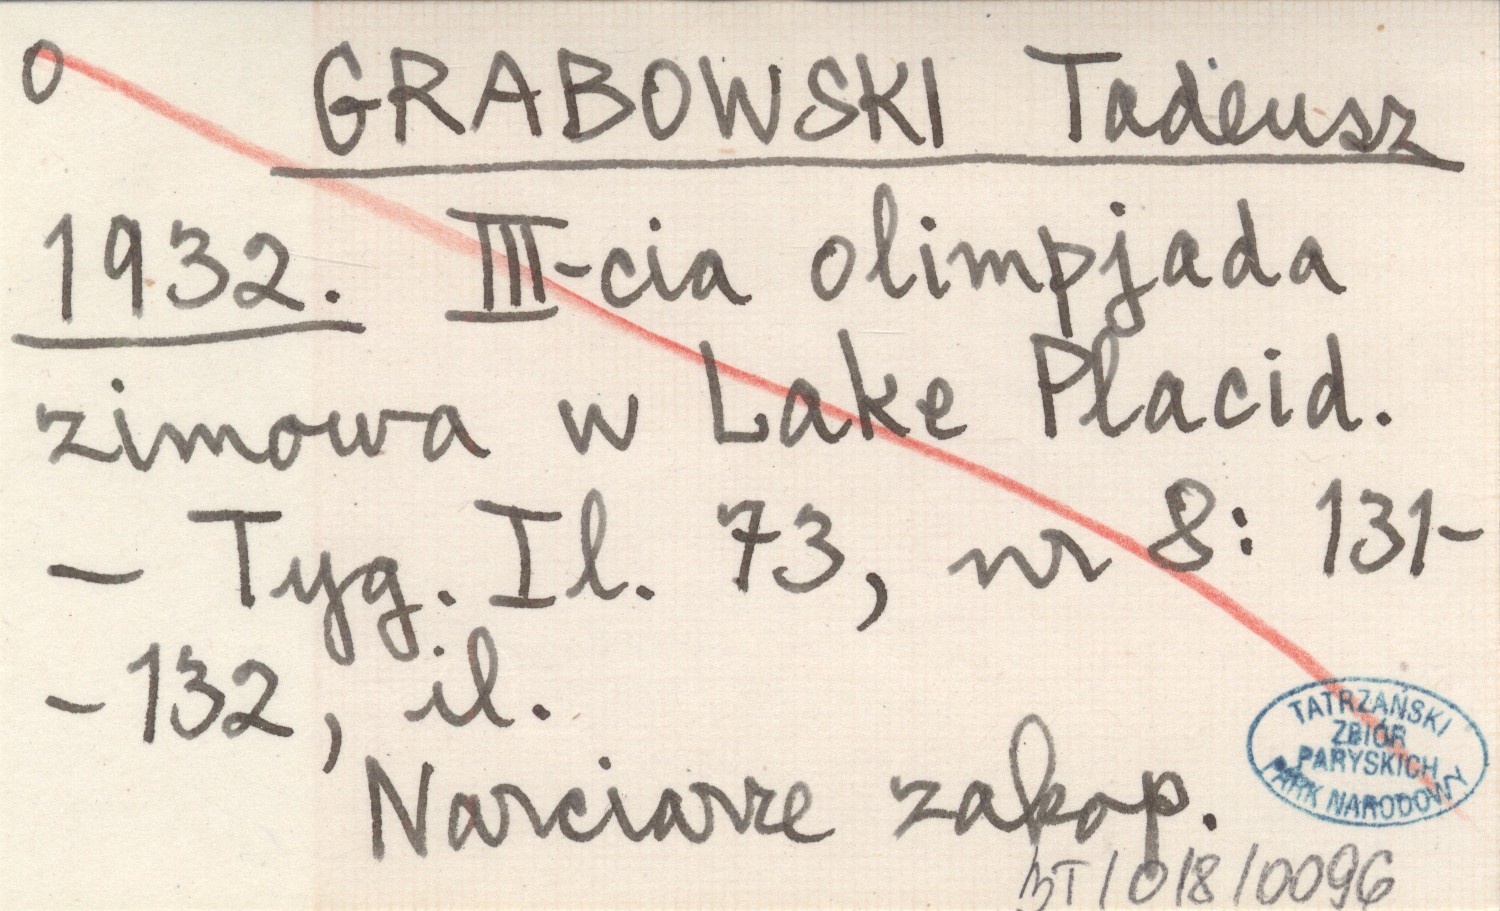 O GRABOWSKI Tadeusz
1932. III-cia olimpjada
zimowa w Lake Placid.
– Tyg. Il. 73, nr 8: 131-
-132, il.
Narciarze zakop.
TATRZAŃSKI
ZBIÓR
PARYSKICH
PARK NARODOWY
BT/O/8/0096